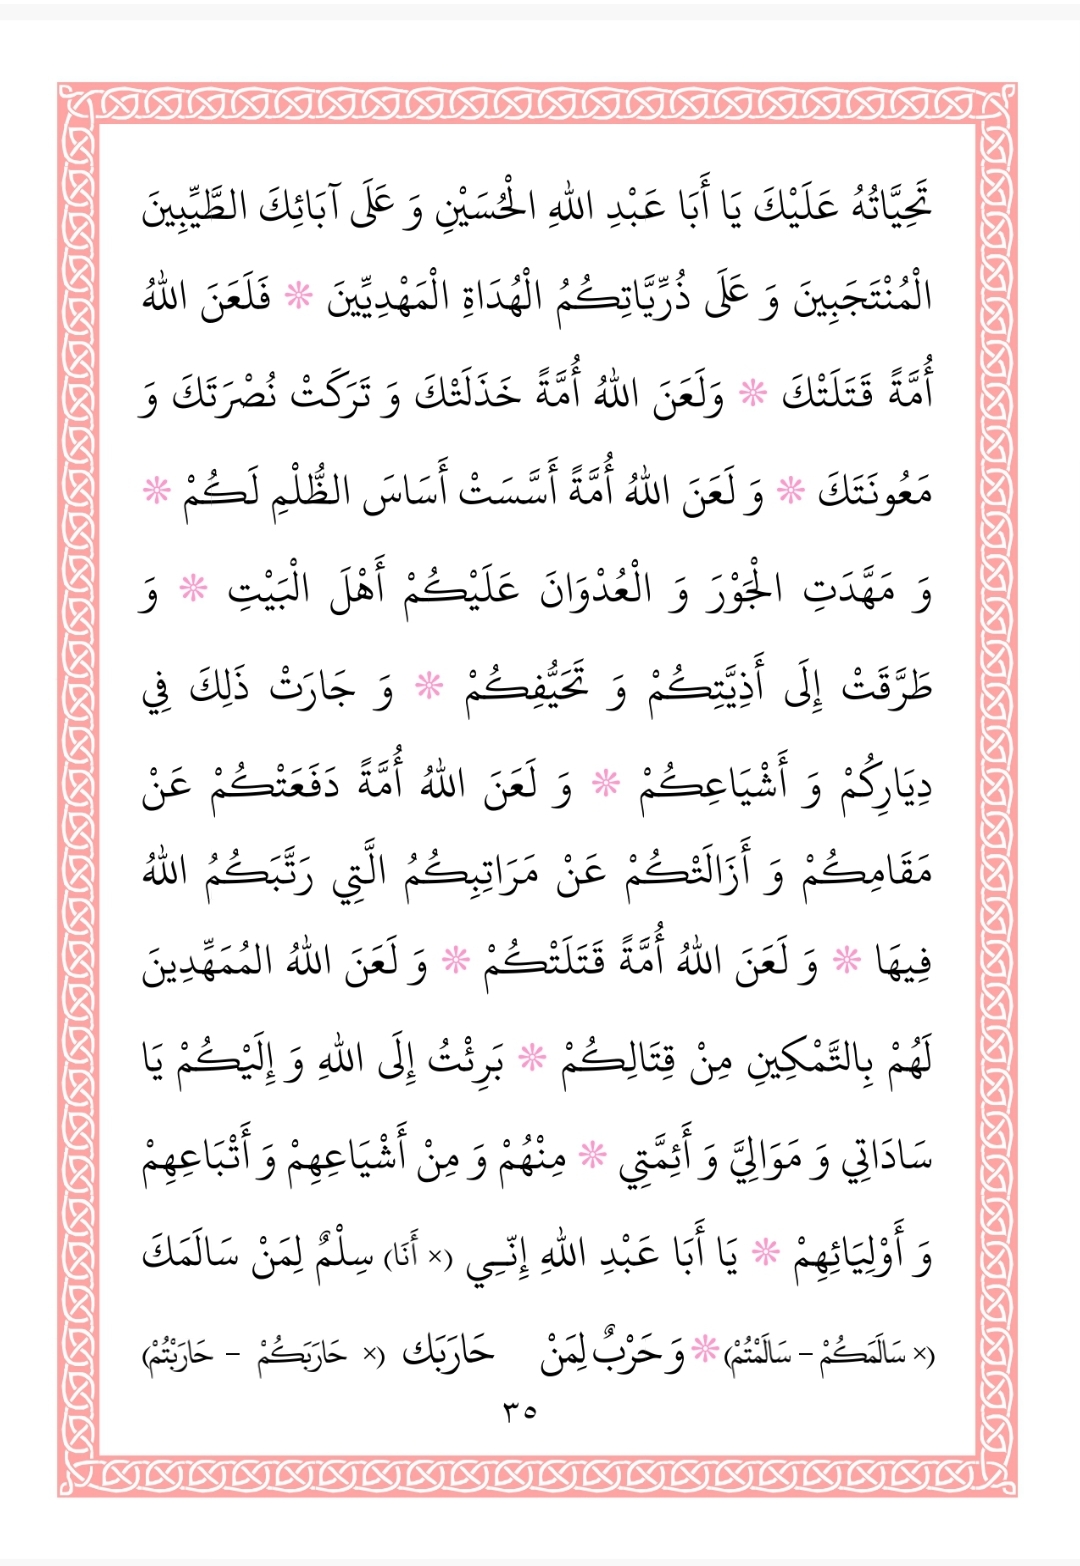 تَحِيَّاتُهُ عَلَيْكَ يَا أَبَا عَبْدِ اللهِ الْحُسَيْنِ وَ عَلَى آبَائِكَ الطَّيِّبِينَ
الْمُنْتَجَبِينَ وَ عَلَى ذُرِّيَّاتِكُمُ الْهُدَاةِ الْمَهْدِيِّينَ ❊ فَلَعَنَ اللهُ
أُمَّةً قَتَلَتْكَ ❊ وَلَعَنَ اللهُ أُمَّةً خَذَلَتْكَ وَ تَرَكَتْ نُصْرَتَكَ وَ
مَعُونَتَكَ ❊ وَ لَعَنَ اللهُ أُمَّةً أَسَّسَتْ أَسَاسَ الظُّلْمِ لَكُمْ ❊
وَ مَهَّدَتِ الْجَوْرَ وَ الْعُدْوَانَ عَلَيْكُمْ أَهْلَ الْبَيْتِ ❊ وَ
طَرَّقَتْ إِلَى أَذِيَّتِكُمْ وَ تَحَيُّفِكُمْ ❊ وَ جَارَتْ ذَلِكَ فِي
دِيَارِكُمْ وَ أَشْيَاعِكُمْ ❊ وَ لَعَنَ اللهُ أُمَّةً دَفَعَتْكُمْ عَنْ
مَقَامِكُمْ وَ أَزَالَتْكُمْ عَنْ مَرَاتِبِكُمُ الَّتِي رَتَّبَكُمُ اللهُ
فِيهَا ❊ وَ لَعَنَ اللهُ أُمَّةً قَتَلَتْكُمْ ❊ وَ لَعَنَ اللهُ المُمَهِّدِينَ
لَهُمْ بِالتَّمْكِينِ مِنْ قِتَالِكُمْ ❊ بَرِئْتُ إِلَى اللهِ وَ إِلَيْكُمْ يَا
سَادَاتِي وَ مَوَالِيَّ وَ أَئِمَّتِي ❊ مِنْهُمْ وَ مِنْ أَشْيَاعِهِمْ وَ أَتْبَاعِهِمْ
وَ أَوْلِيَائِهِمْ ❊ يَا أَبَا عَبْدِ اللهِ إِنّـِي (× أَنَا) سِلْمٌ لِمَنْ سَالَمَكَ
(× سَالَمَكُمْ – سَالَمْتُمْ) ❊ وَ حَرْبٌ لِمَنْ حَارَبَك (× حَارَبَكُمْ – حَارَبْتُمْ)
٣٥